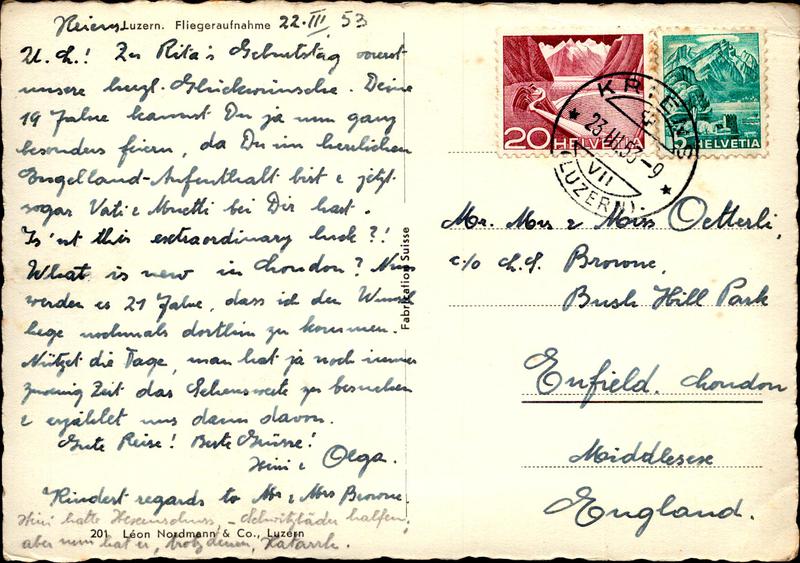 Luzern. Fliegeraufnahme 22. III. 53
U. L.! Zu Rita's Geburtstag vorerst
unsere herzl. Glückwünsche. Deine
19 Jahre kannst Du ja nun ganz
besonders feiern, da Du im herrlichen
England-Aufenthalt bist & jetzt
sogar Vati & Muetti bei Dir hast.
Is'nt this extraordinary luck?!
What is new in London? Nun
werden es 21 Jahre, dass ich den Wunsch
hege nochmals dorthin zu kommen.
Nützet die Tage, man hat ja noch immer
zuwenig Zeit das Sehenswerte zu besuchen
& erzählet uns dann davon.
Gute Reise! Beste Grüsse!
Heini & Olga.
Kindest regards to Mr & Mrs Browne.
Heini hatte Hexenschuss, – Schwitzbäder halfen,
aber nun hat er, trotz denen, Katarrh.
201 Léon Nordmann & Co., Luzern
Fabrication Suisse
20 HELVETIA
5 HELVETIA
KRIENS
23.III.53-9
VII
(LUZERN)
Mr. Mrs & Miss Oetterli,
c/o L.S. Browne,
Bush Hill Park
Enfield. London
Middlesex
England.